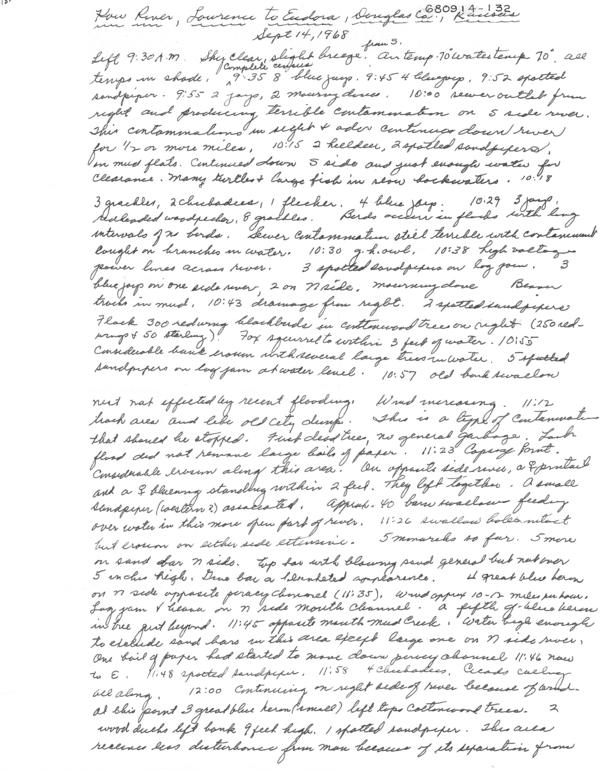 680914-132
Kaw River, Lawrence to Eudora, Douglas Co., Kansas
Sept 14, 1968
from S.
Left 9:30 A.M. Sky clear, slight breeze. Air temp. 70° water temp 70°. all
complete census
temps in shade. 9:35 8 blue jays. 9:45 4 blue jays, 9:52 spotted
sandpiper. 9:55 2 jays, 2 mourning doves. 10:00 sewer outlet from
right and producing terrible contamination on S side river.
This contamination in sight & odor continues down river
for 1/2 or more miles, 10:15 2 killdeer, 2 spotted sandpipers,
on mud flats. Continued down S side and just enough water for
clearance. Many turtles & large fish in slow backwaters. 10:18
3 grackles, 2 chickadees, 1 flicker. 4 blue jays. 10:29 3 jays,
redheaded woodpecker, 8 grackles. Birds occur in flocks with long
intervals of no birds. Sewer contamination still terrible with contaminant
caught on branches in water. 10:30 g.h. owl. 10:38 high voltage
power lines across river. 3 spotted sandpipers on log jam. 3
blue jays on one side river, 2 on N side, mourning dove Beaver
tracks in mud. 10:43 drainage from right. 2 spotted sandpipers
Flock 300 redwing blackbirds in cottonwood trees on right (250 red-
wings & 50 starling). Fox squirrel to within 3 feet of water. 10:55
Considerable bank erosion with several large trees in water. 5 spotted
sandpipers on log jam at water level. 10:57 old bank swallow
nest not effected by recent flooding. Wind increasing. 11:12
trash area and like old city dump. This is a type of contamination
that should be stopped. First dead tree, no general garbage.
flood did not remove large bails of paper. 11:23 Point.
Considerable erosion along this area. On opposite side river, a ♀ pintail
and a ♀ bluewing standing within 2 feet. They left together. A small
sandpiper (western?) associated. Approx. 40 barn swallows feeding
over water in this more open part of river. 11:26 swallow holes intact
but erosion on either side extensive. 5 monarchs so far. 5 more
on sand bar N side. Top bar with blowing sand general but not over
5 inches high. Bar a appearance. 4 great blue heron
on N side opposite channel (11:35). Wind approx 10-12 miles per hour.
Log jam & heron on N side mouth channel. A fifth g-blue heron
in tree just beyond. 11:45 opposite mouth Mud Creek. Water high enough
to exclude sand bars in this area except large one on N side river.
One bail of paper had started to move down channel 11:46 now
to E. 11:48 spotted sandpiper. 11:58 4 chickadees. Cicads calling
all along. 12:00 Continuing on right side of river because of wind.
At this point 3 great blue heron (small) left tops cottonwood trees. 2
wood ducks left bank 9 feet high. 1 spotted sandpiper. This area
receives less disturbance from man because of its separation from